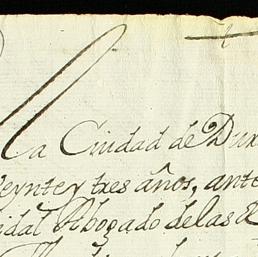 la Ciudad de Dur
veynte y tres años, ante
vidal Abogado de las R